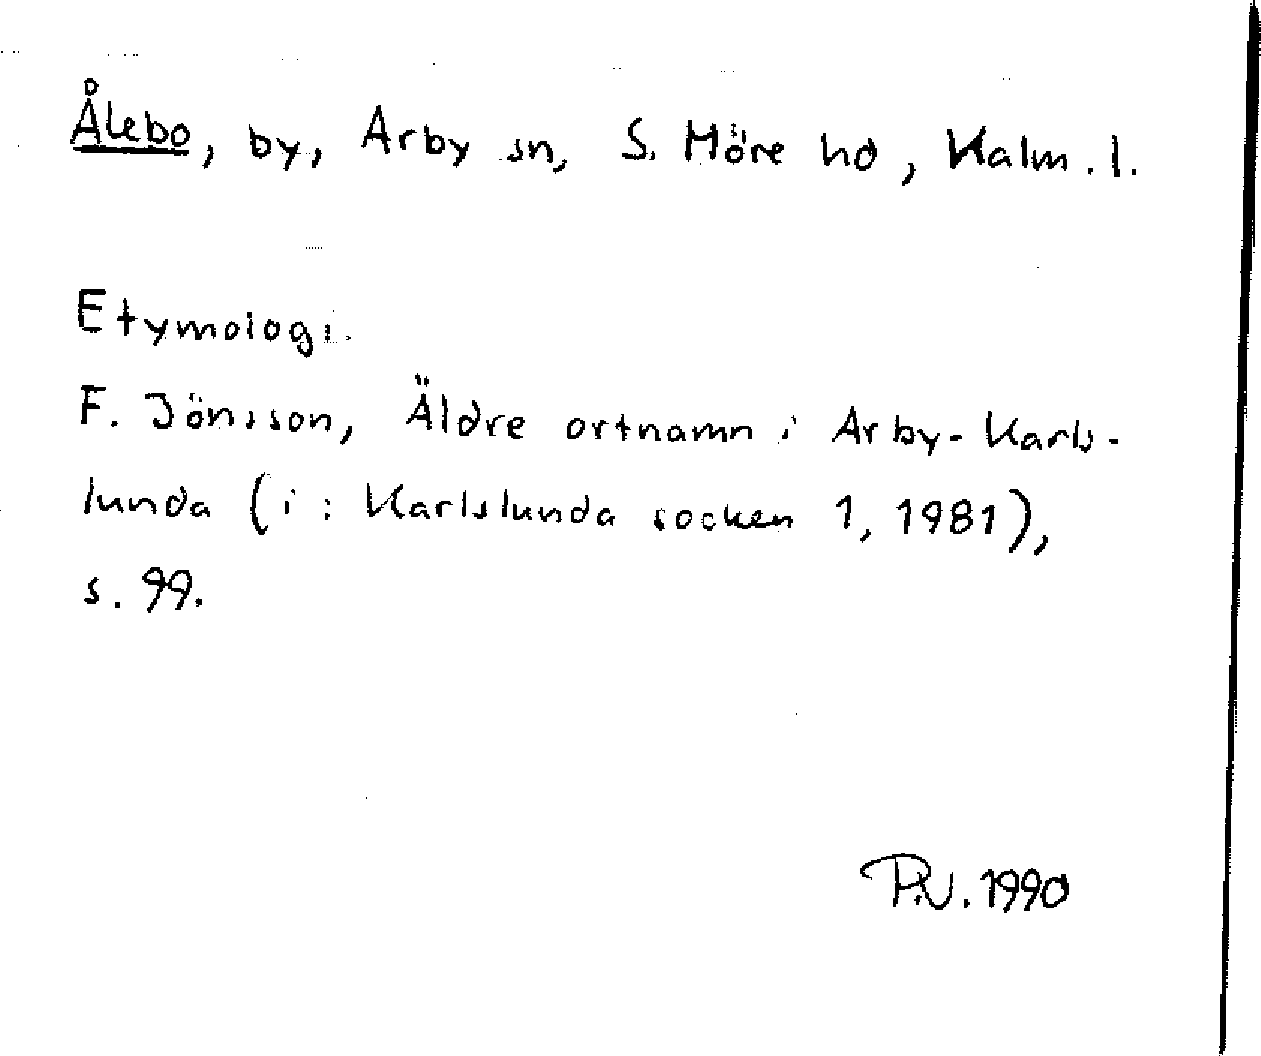 Ålebo, by, Arby sn, S. Möre hd, Kalm. l.
Etymologi.
F. Jönsson, Äldre ortnamn i Arby-Karls-
lunda (i: Karlslunda socken 1, 1981),
s. 99.
P.V. 1990